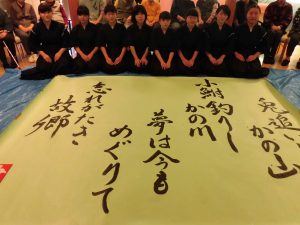 兎追いし
かの山
小鮒釣りし
かの川
夢は今も
めぐりて
忘れがたき
故郷